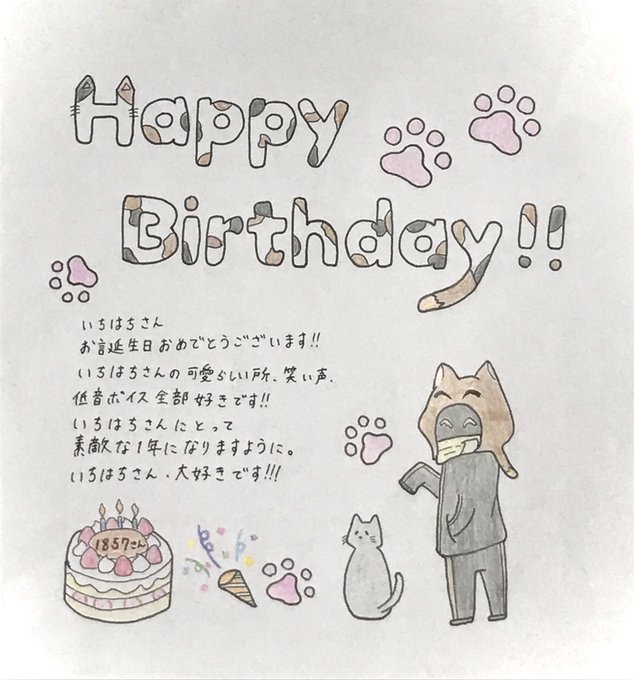 Happy
Birthday!!
いちはちさん
お誕生日おめでとうございます!!
いちはちさんの可愛らしい所、笑い声、
低音ボイス全部好きです!!
いちはちさんにとって
素敵な1年になりますように。
いちはちさん、大好きです!!!
1857さん